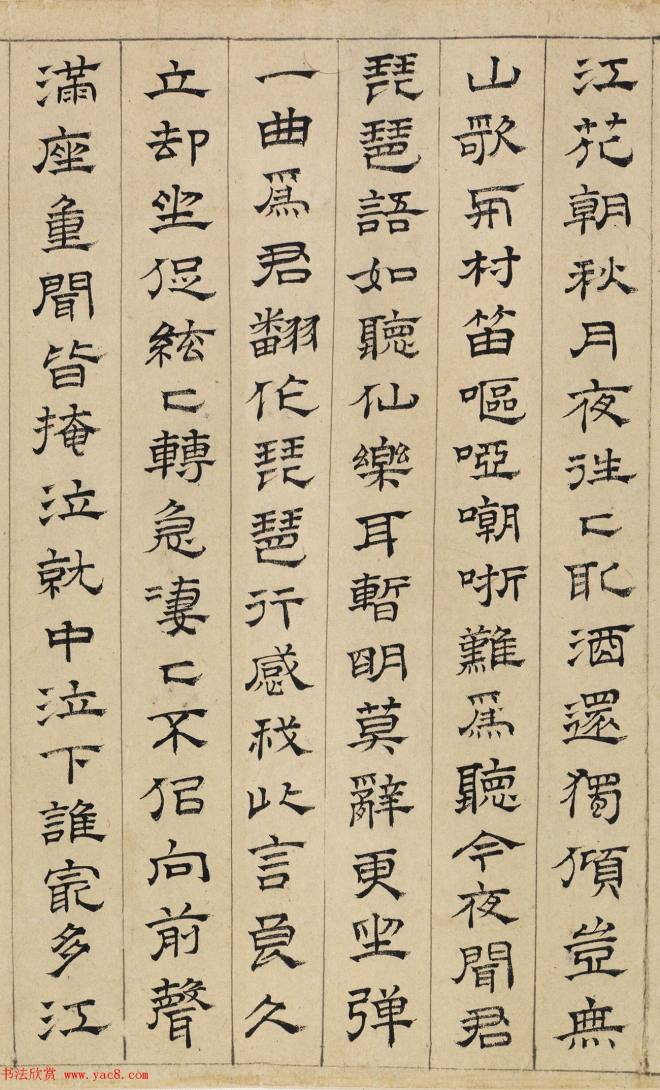 江花朝秋月夜往〻取酒還獨傾豈無
山歌與村笛嘔啞嘲哳難爲聽今夜聞君
琵琶語如聽仙樂耳暫明莫辭更坐弹
一曲爲君翻作琵琶行感我此言良久
立却坐促絃〻轉急淒〻不似向前聲
滿座重聞皆掩泣就中泣下誰冣多江
书法欣赏 www.yac8.com